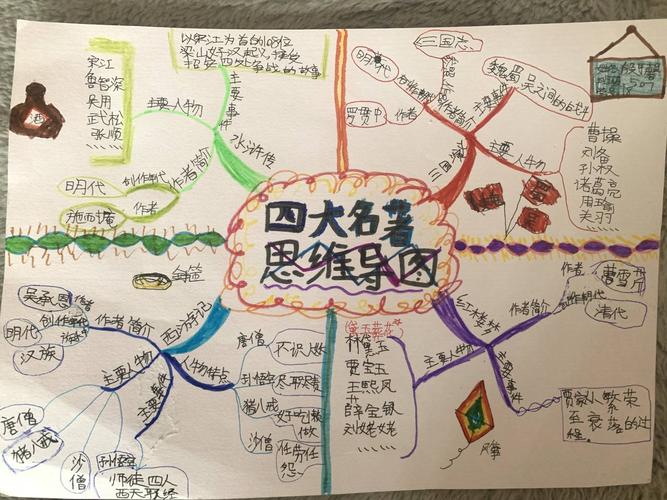 四大名著
思维导图
水浒传
主要事件
以宋江为首的108位
梁山好汉起义，接受
招安四处争战的故事
主要人物
宋江
鲁智深
吴用
武松
张顺
作者简介
创作年代
明代
作者
施耐庵
酒
三国演义
作者简介
创作年代
明代
作者
罗贯中
三国志
主要事件
魏蜀吴之间的战斗
主要人物
曹操
刘备
孙权
诸葛亮
周瑜
关羽
......
西游记
金箍
作者简介
作者
吴承恩
创作年代
明代
汉族
主要人物
唐僧
猪八戒
沙僧
孙悟空
主要事件
师徒四人
西天取经
人物特点
唐僧
不识人妖
孙悟空
猪八戒
好吃懒
做
沙僧
任劳任
怨
红楼梦
作者简介
作者
曹雪芹
创作年代
清代
主要人物
黛玉葬花
林黛玉
贾宝玉
王熙凤
薛宝钗
刘姥姥
......
主要事件
贾家从繁荣
至衰落的过
程。
风筝